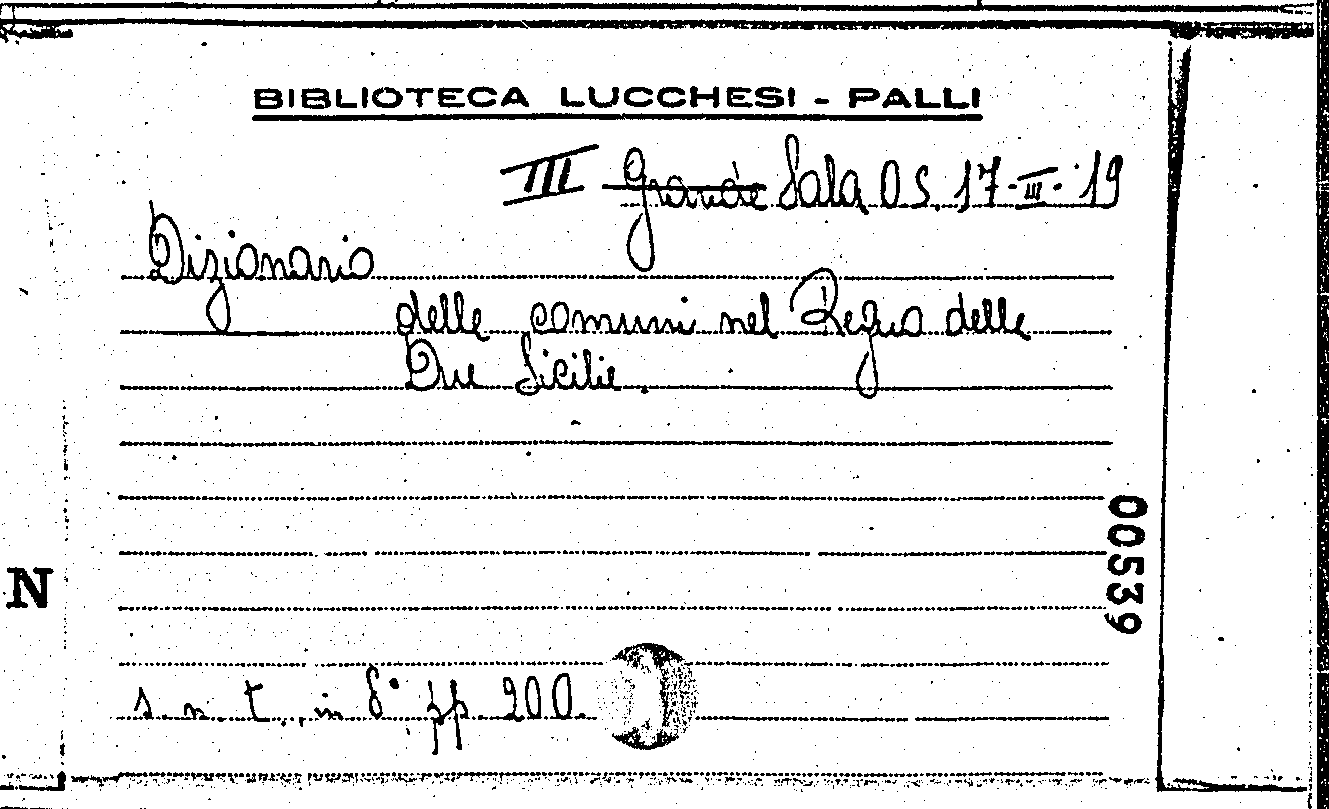 BIBLIOTECA LUCCHESI - PALLI
III Grande Sala O S. 17-III-19
Dizionario
delle comuni nel Regno delle
Due Sicilie.
00539
N
s. n. t., in 8° pp. 200.